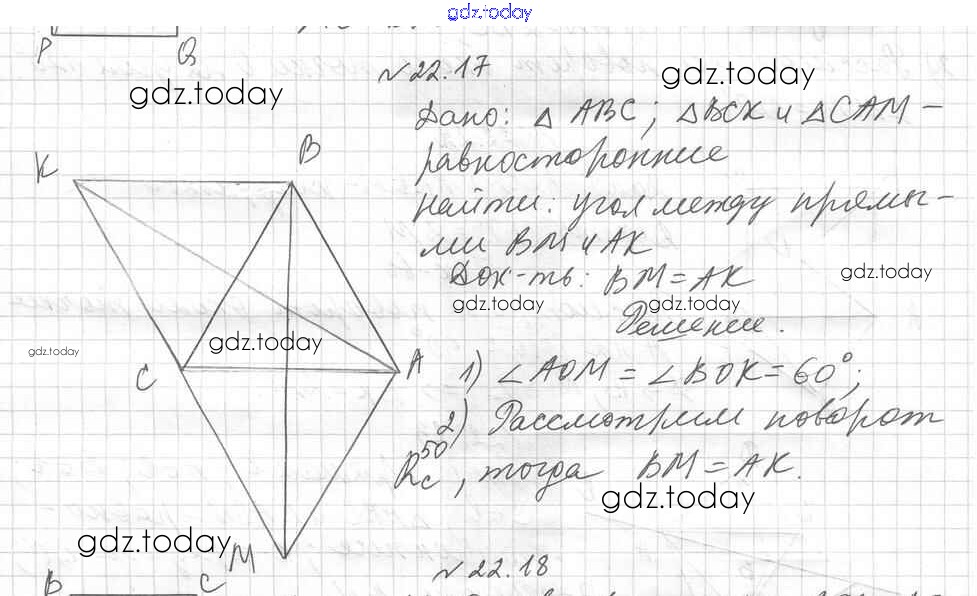 gdz.today
P Q
gdz.today
№22.17
gdz.today
Дано: △ ABC; △BCK и △CAM –
равносторонние
K B
Найти: угол между прямы-
ми BM и AK
Док-ть: BM = AK
gdz.today
gdz.today
gdz.today
Решение.
gdz.today
gdz.today
C A
1) ∠AOM = ∠BOK = 60°;
2) Рассмотрим поворот
R_C^50, тогда BM = AK.
gdz.today
gdz.today
M
№22.18
B C